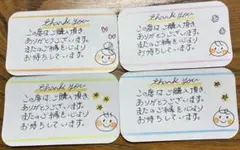 thank you
この度はご購入頂き
ありがとうございます。
またのご縁を心より
お待ちしています。
thank you
この度はご購入頂き
ありがとうございます。
またのご縁を心より
お待ちしています。
thank you
この度はご購入頂き
ありがとうございます。
またのご縁を心より
お待ちしています。
thank you
この度はご購入頂き
ありがとうございます。
またのご縁を心より
お待ちしています。